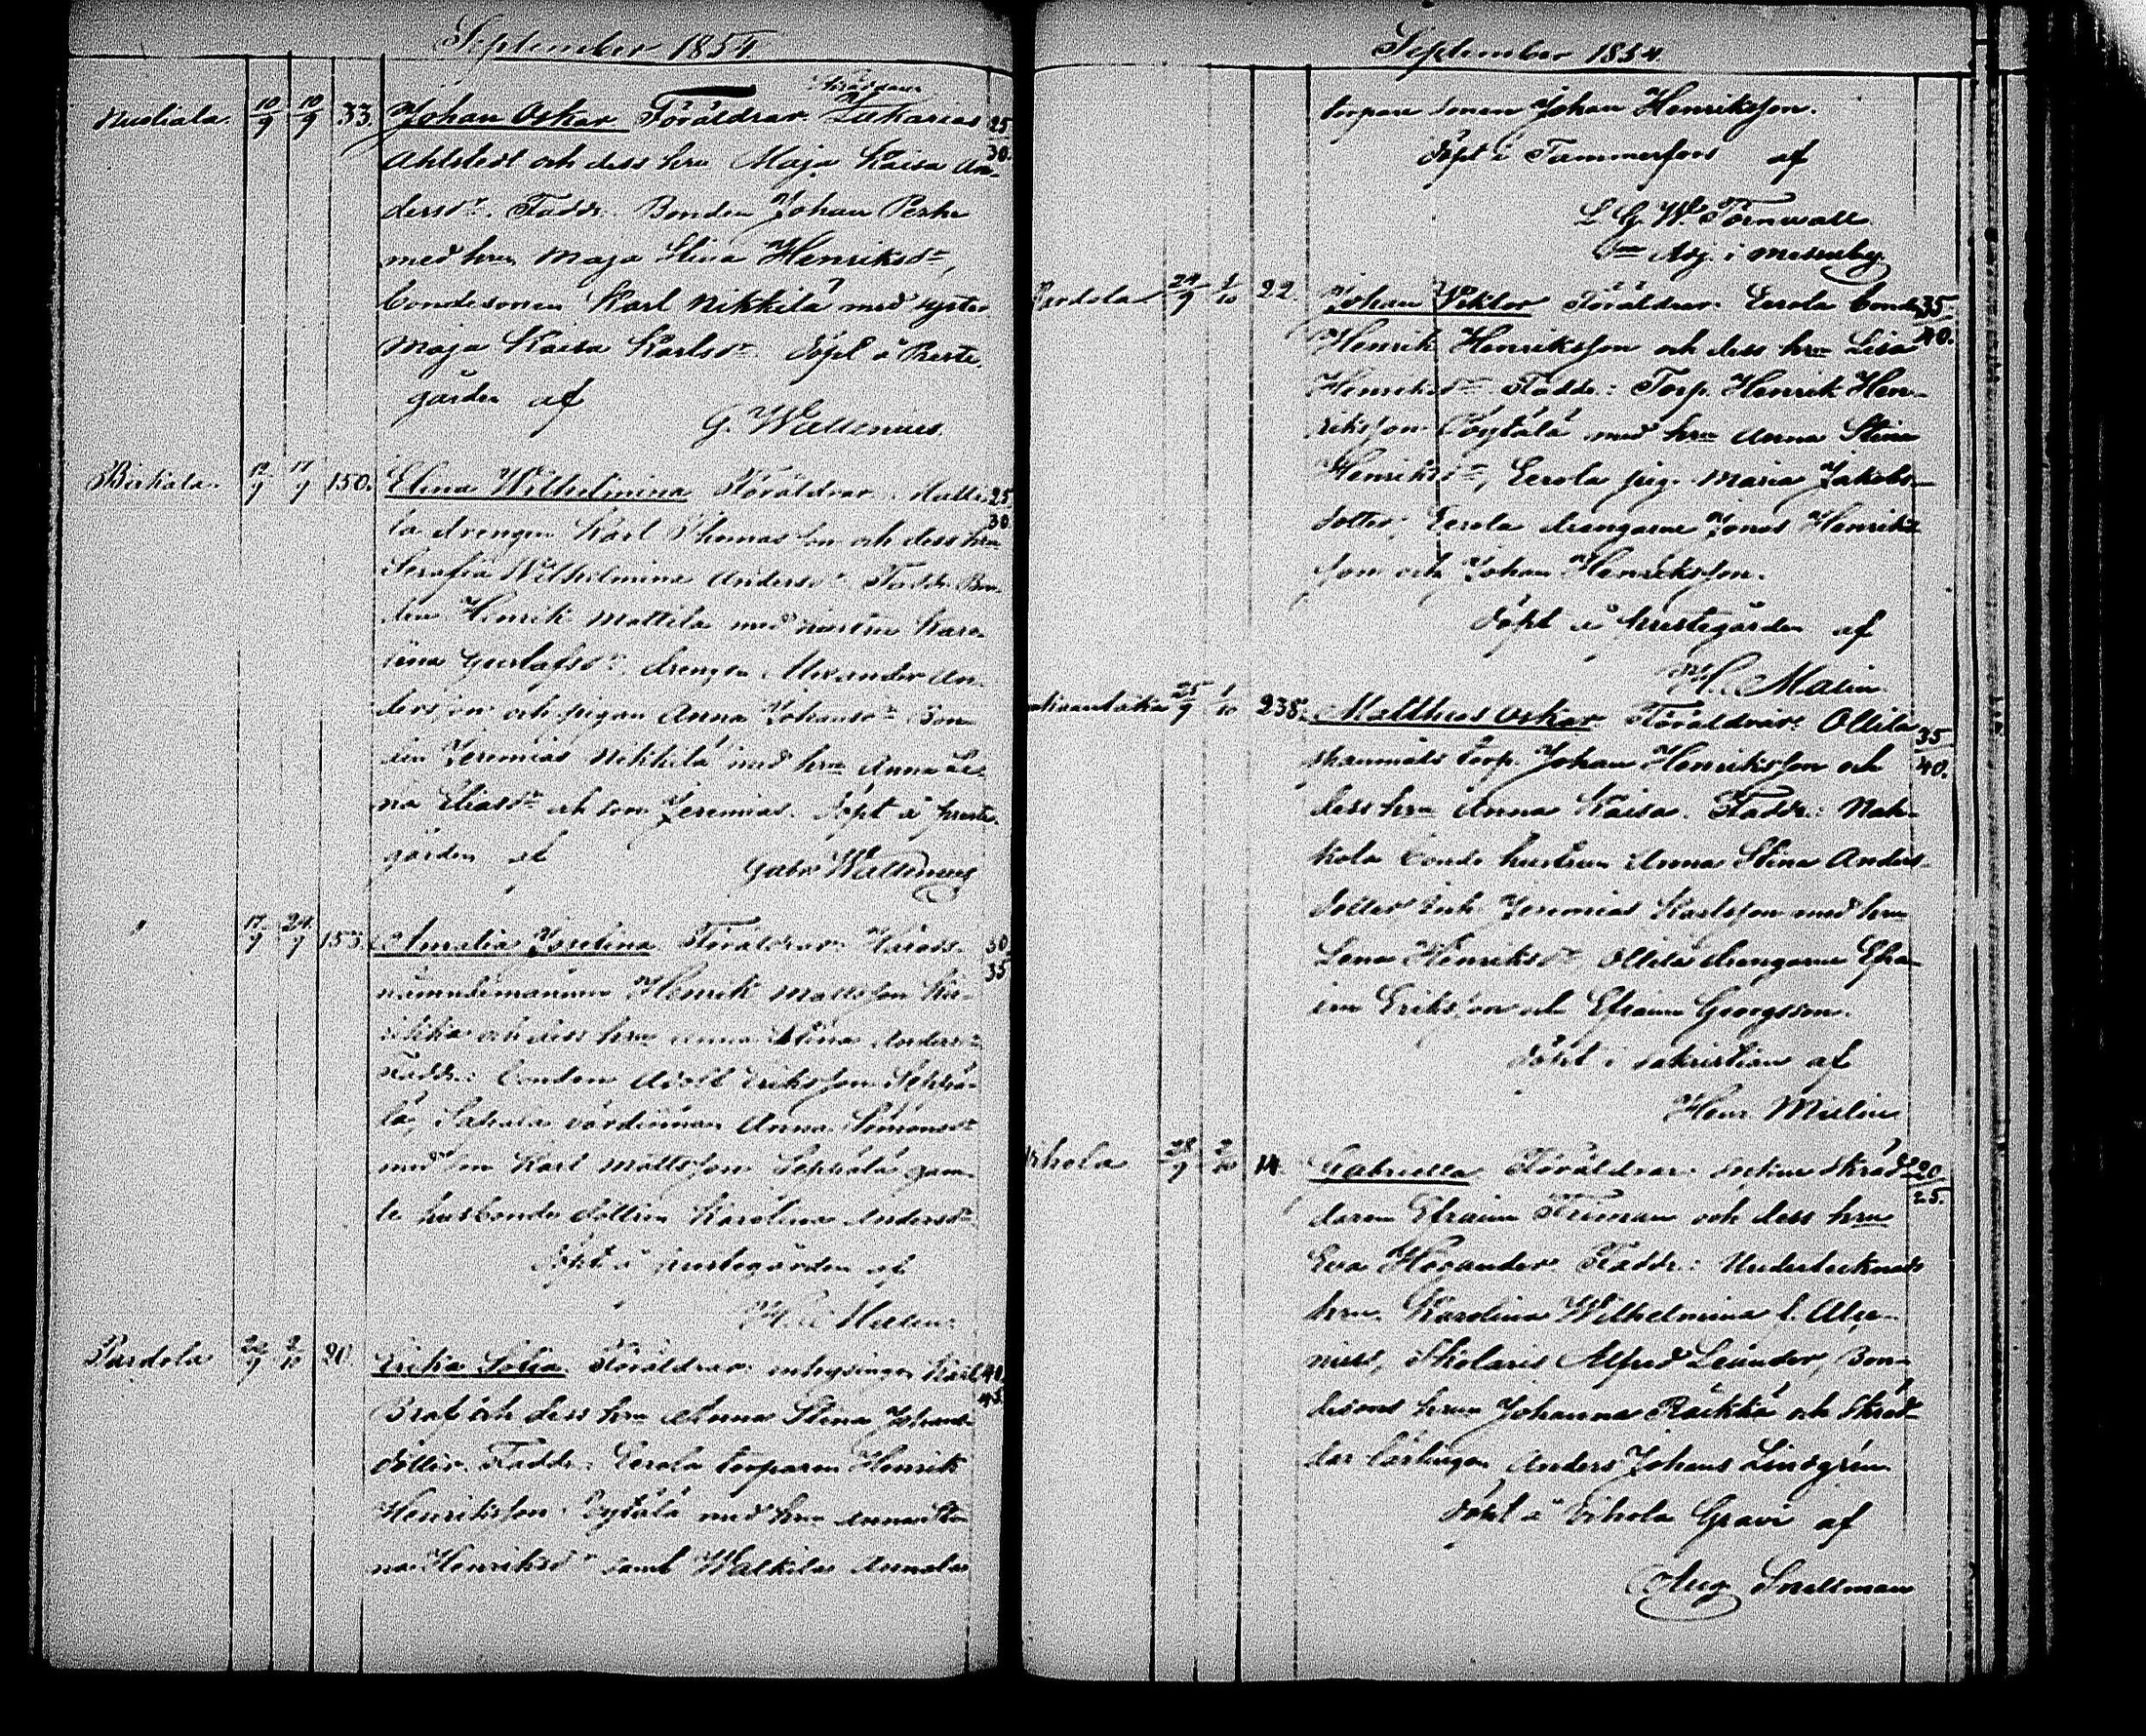 September 1854.
Nuoliala. 10/9 10/9 33. Johan Oskar Föräldrar: Zakarias 25/30.
Ahlstedt och dess hru Maja Kaisa An-
dersdr. Faddr. Bonden Johan Perho
med hru Maja Stina Henriksdr,
bondesonen Karl Nikkilä med syster
Maja Kaisa Karlsdr. Döpt å Preste-
gården af
G. Wallenius.
Birkala. 12/9 17/9 150. Elina Wilhelmina Föräldrar: 25/30
la drengen Karl Thomasson och dess hru
Serafia Wilhelmina Andersdr. Faddr. Bon-
den Henrik Mattila med hustru Karo-
lina Gustafsdr. drengen Alexander An-
dersson och pigan Anna Johansdr Bon-
den Jeremias Nikkilä med hru Anna Le-
na Eliasdr och son Jeremias. Döpt å preste-
gården af
Gabr Wallenius
17/9 24/9 153. Amalia Josefina Föräldrar: Härads- 30/35
nämndemannen Henrik Mattsson
och dess hru Anna Stina Andersdr
Faddr.: bonden Adolf Eriksson Seppä-
lä, värdinnan Anna Simonsdr
med son Karl Mattsson Seppälä gam-
le husbonde dottren Karolina Andersdr
Döpt å prestegården af
H. Malin
Perdola 22/9 2/10 20. Erika Sofia. Föräldrar: inhysingen Karl 40/45.
Braf och dess hru Anna Stina Johans-
dotter. Faddr.: Eerola torparen Henrik
Henriksson Pöytälä med hru Anna Sti-
na Henriksdr samt
September 1854.
torpare sonen Johan Henriksson.
Döpt i Tammerfors af
L G W Törnwall
Adj. i Messuby.
Perdola 24/9 1/10 22. Johan Viktor Föräldrar: Eerola bonde 35/40.
Henrik Henriksson och dess hru Lisa
Henriksdr Faddr.: Torp. Henrik Hen-
riksson Pöytälä med hru Anna Stina
Henriksdr, Eerola pig. Maria Jakobs-
dotter, Eerola drengarne Jonas Henriks-
son och Johan Henriksson.
Döpt å prestegården af
H. Malin
25/9 1/10 238. Matthus Oskar Föräldrar: Ollila 35/40.
spannmåls torp. Johan Henriksson och
dess hru Anna Kaisa. Faddr.: Nok-
kola bonde hustrun Anna Stina Anders-
dotter Inh. Jeremias Karlsson med hru
Lena Henriksdr, Ollila drengarne Efra-
im Eriksson och Efraim Georgsson.
Döpt i sakristian af
Henr. Malin
Vihola 28/9 2/10 14. Gabriella Föräldrar: Socken Skräd- 20/25.
daren Efraim Friman och dess hru
Eva Hosander Faddr.: Undertecknads
hru Karolina Wilhelmina f. Alce-
nius, Skolaris Alfred Leander, Bon-
desons hrun Johanna Räikkä och Skräd-
dar lärlingen Anders Johans Lindgrén
Döpt å Vihola Gravi af
Aug Snellman